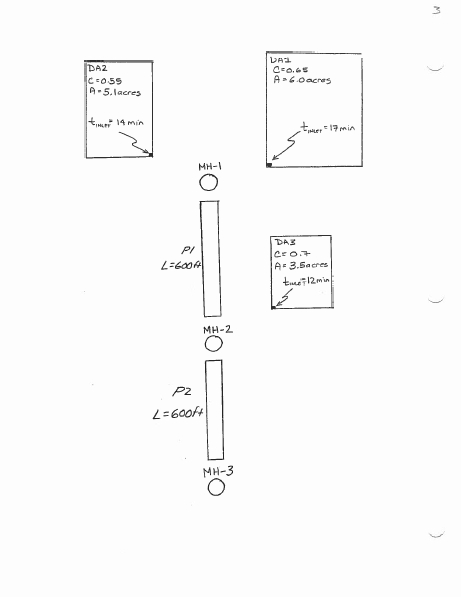 3
DA2
C=0.55
A=5.1acres
tINLET=14min
DA1
C=0.65
A=6.0acres
tINLET=17min
MH-1
P1
L=600ft
DA3
C=0.7
A=3.5acres
tINLET=12min
MH-2
P2
L=600ft
MH-3